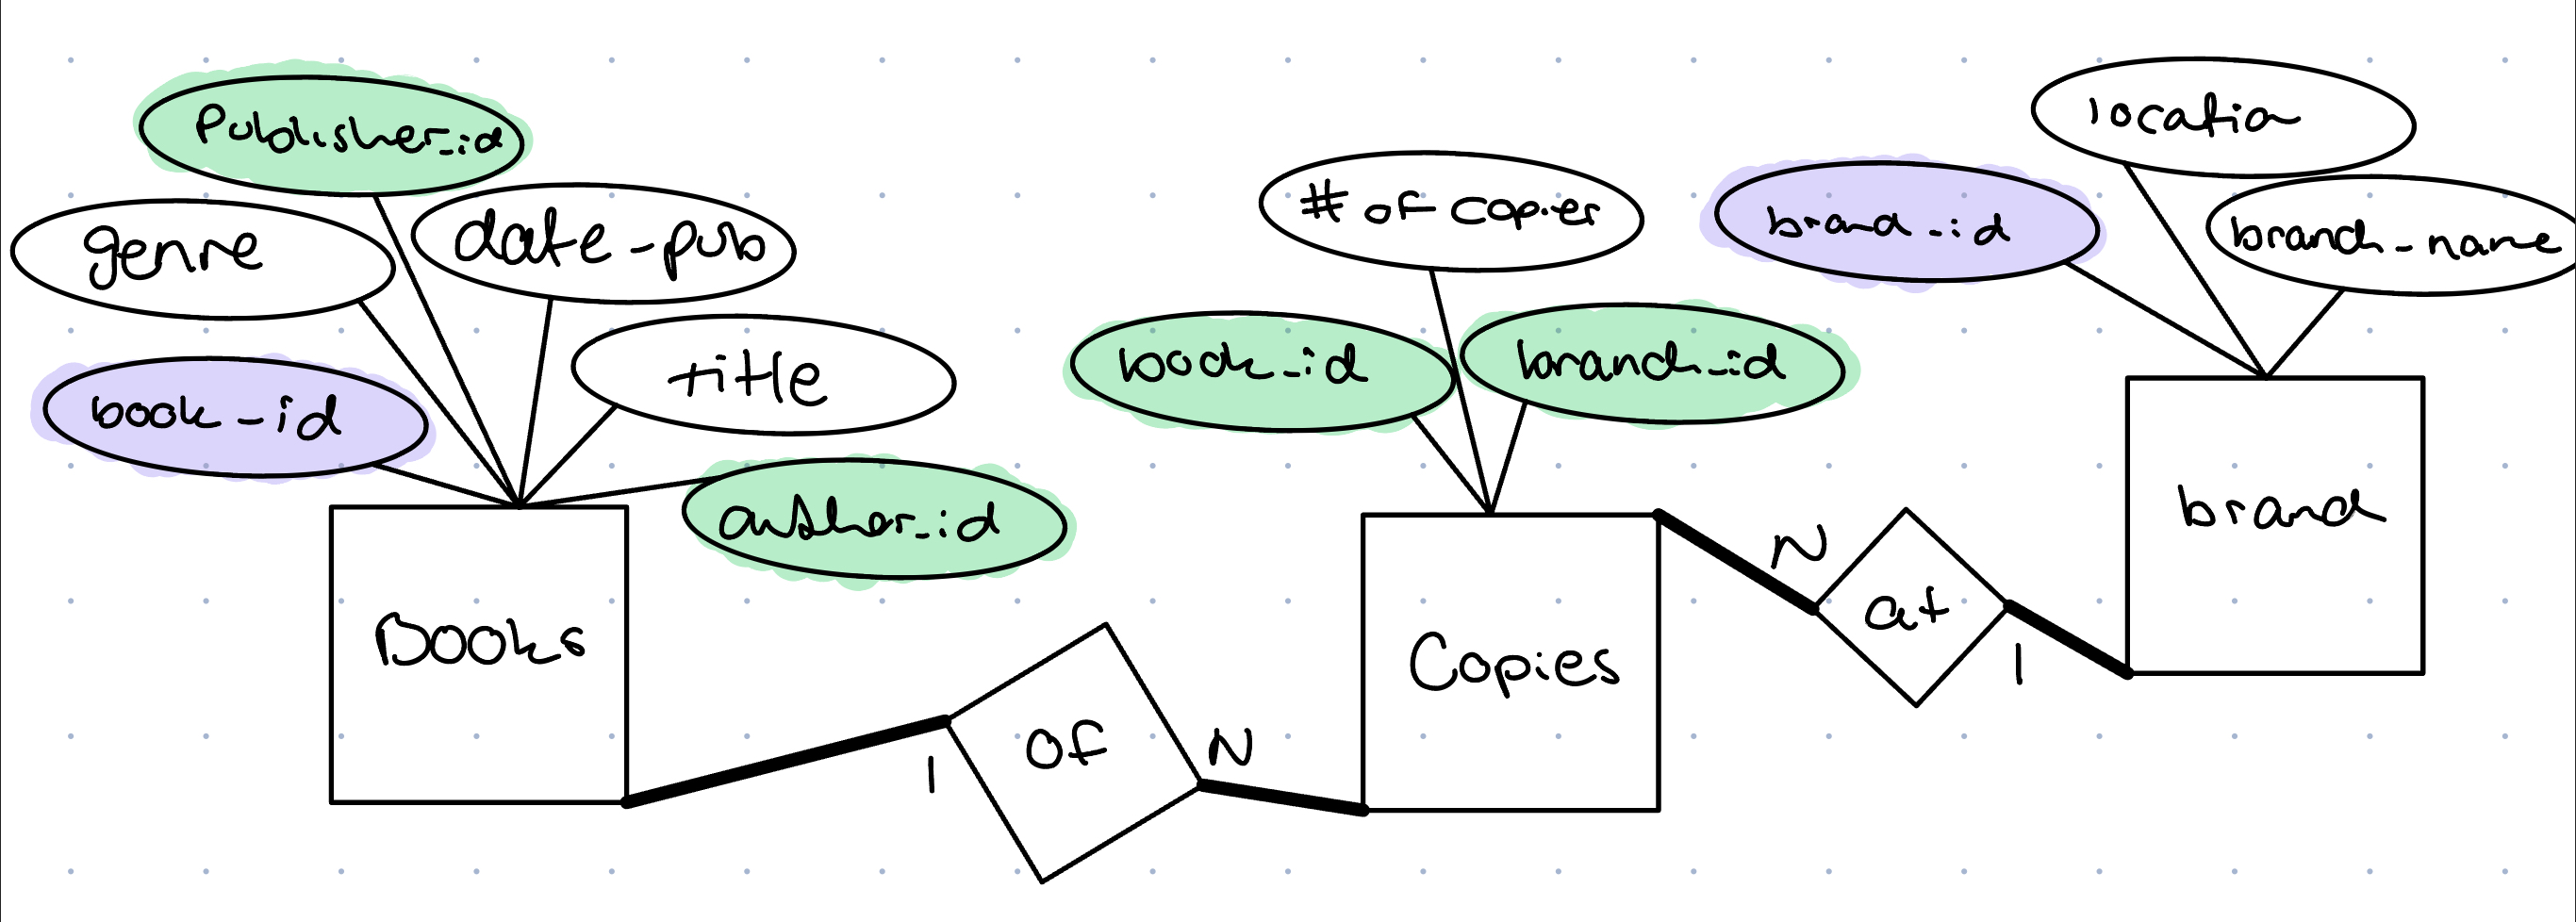 Publisher_id
genre
date-pub
title
book-id
author_id
Books
1
of
N
# of copies
book-id
branch-id
Copies
N
at
1
location
branch-id
branch-name
branch